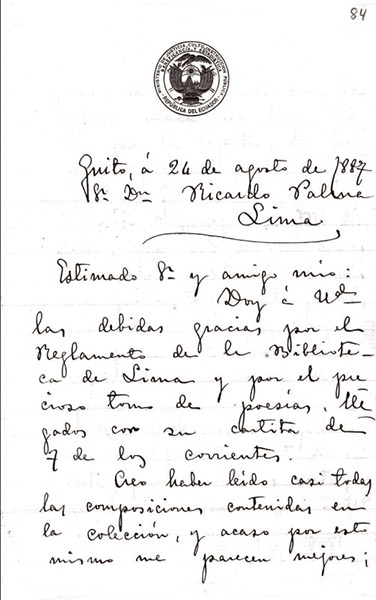 84
REPÚBLICA DEL ECUADOR
Quito, á 24 de agosto de 1887
Sr. Dn Ricardo Palma
Lima
Estimado Sr. y amigo mio:
Doy á Ud.
las debidas gracias por el
Reglamento de la Bibliote-
ca de Lima y por el pre-
cioso tomo de poesías, lle-
gados con su cartita de
7 de los corrientes.
Creo haber leído casi todas
las composiciones contenidas en
la colección, y acaso por esto
mismo me parecen mejores;